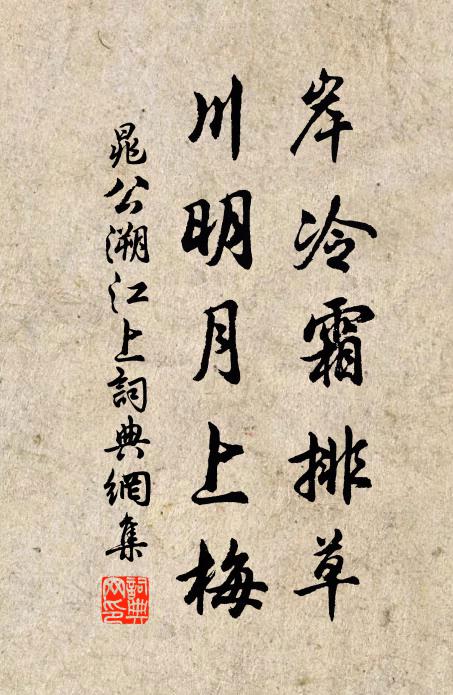 岸冷霜排草
川明月上梅
晁公溯江上詞典網集
詞典网印